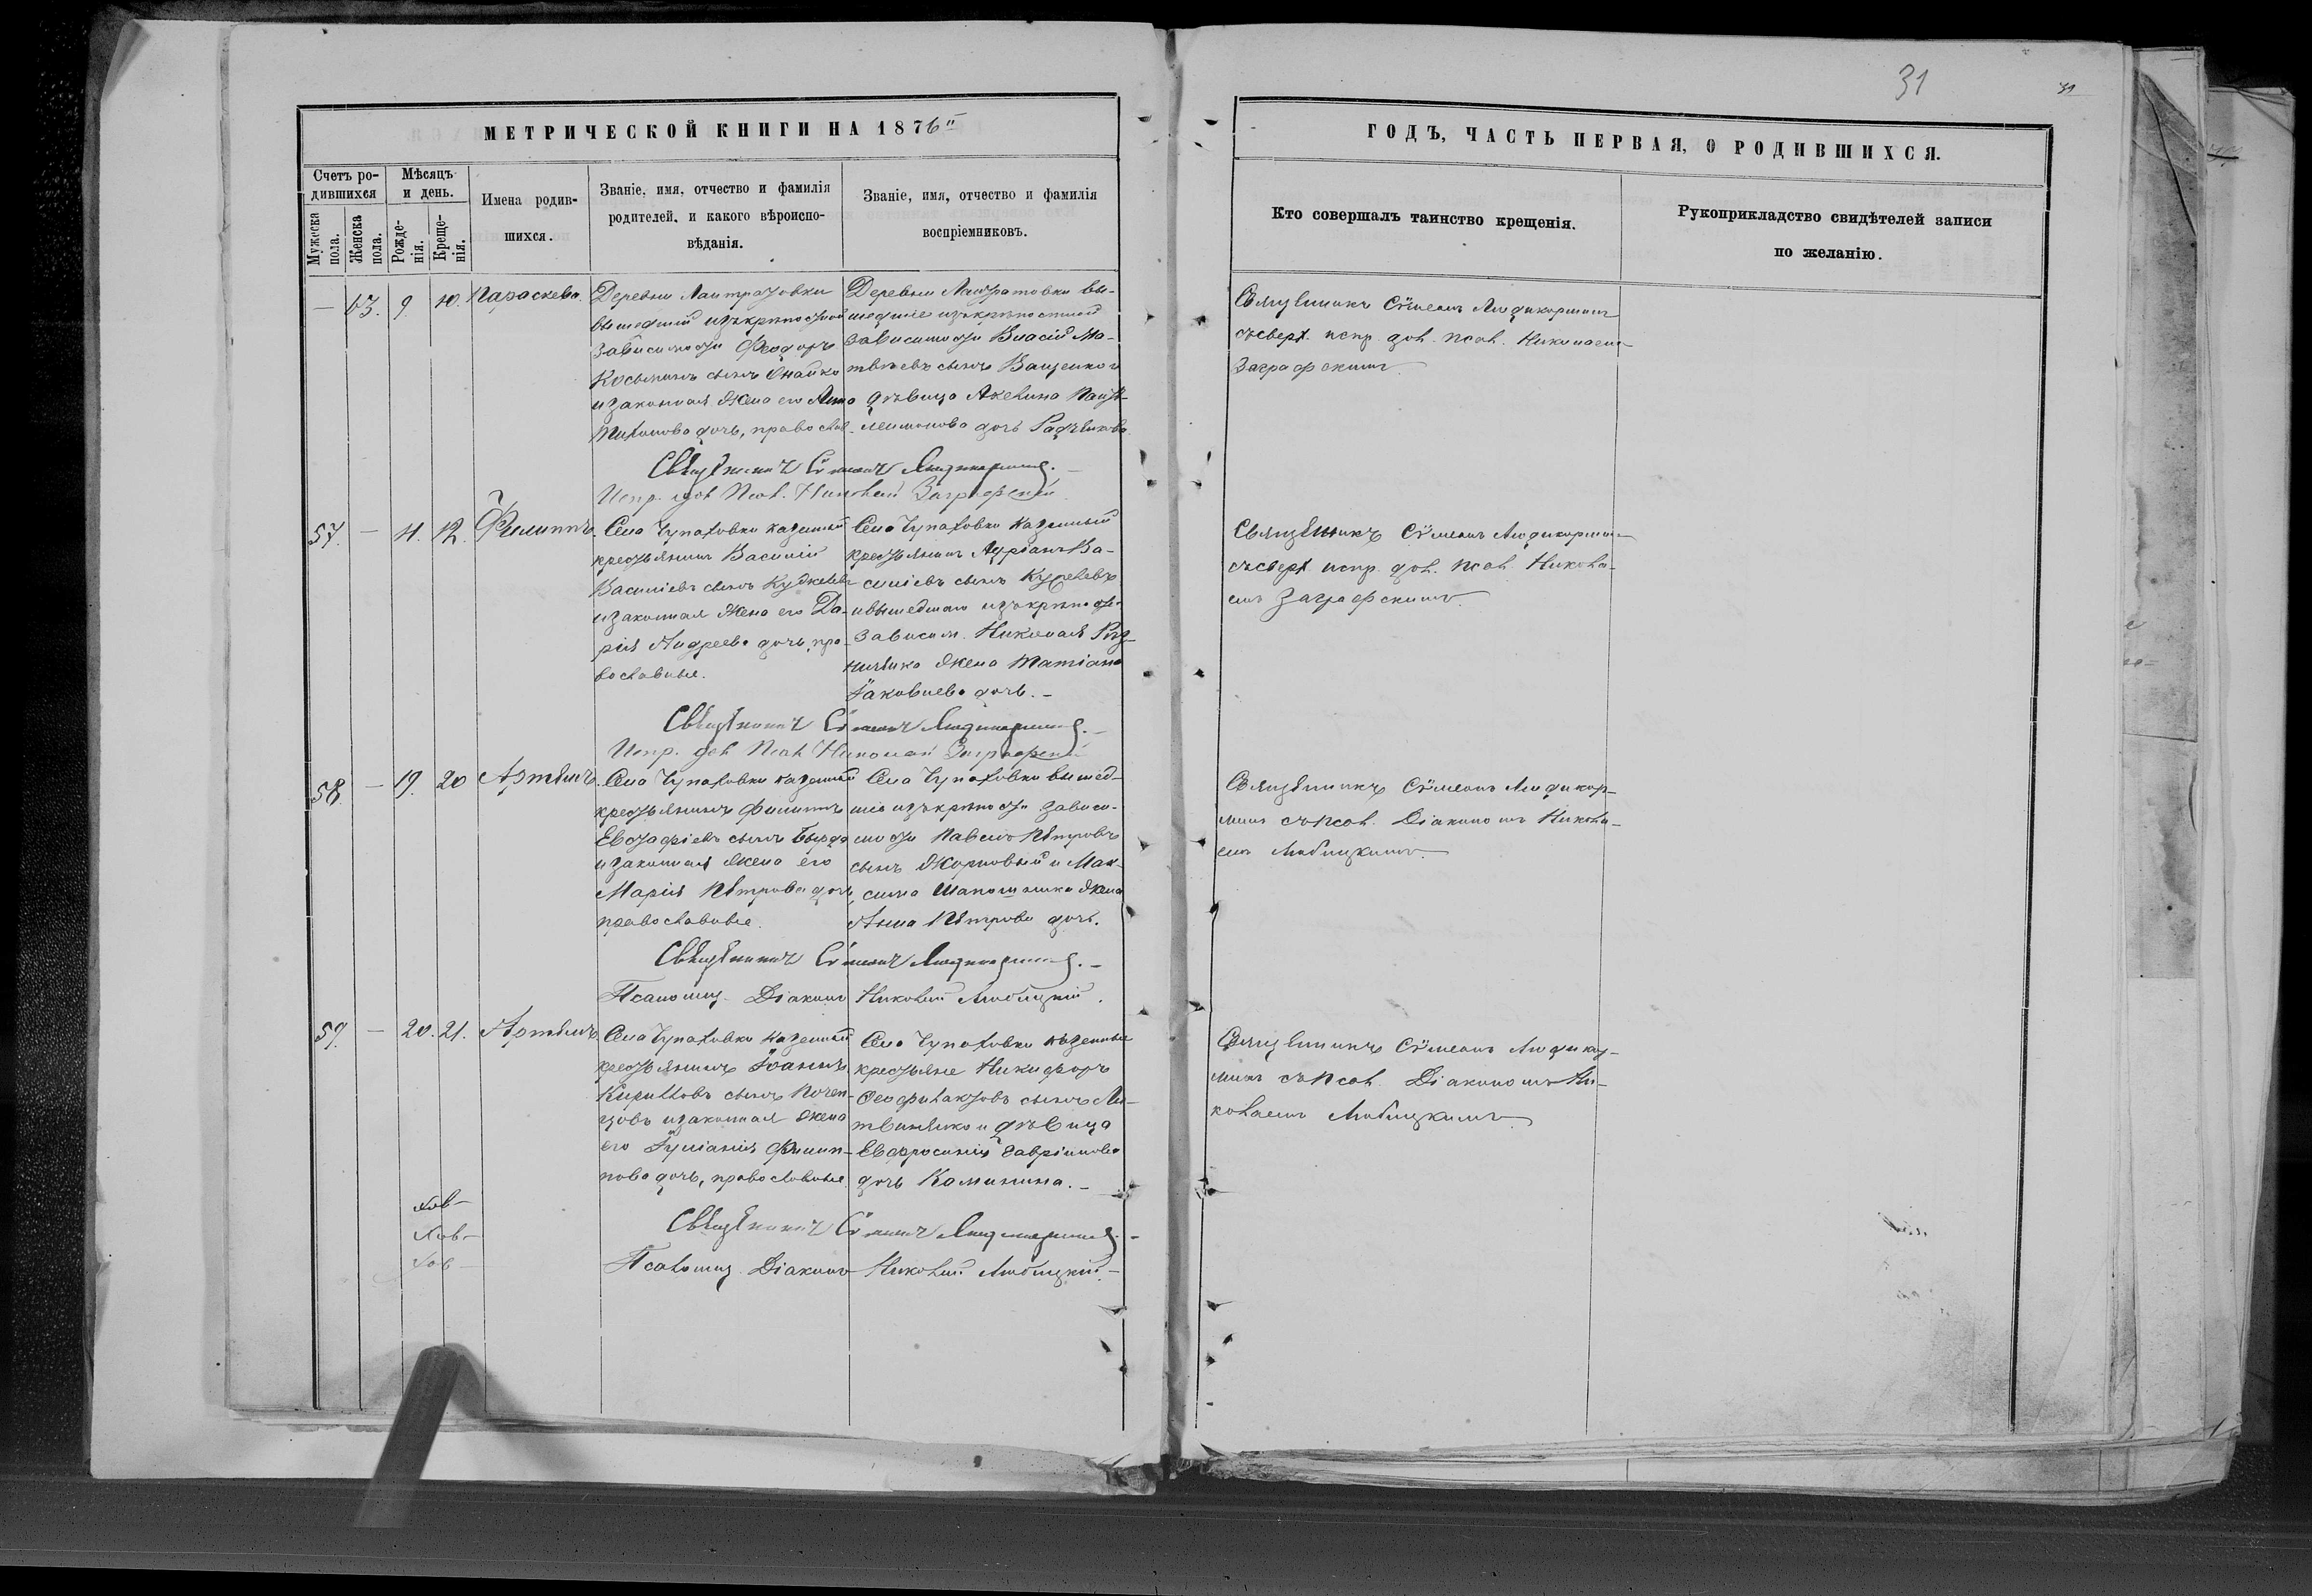 31
31
МЕТРИЧЕСКОЙ КНИГИ НА 1876й
ГОДЪ, ЧАСТЬ ПЕРВАЯ, О РОДИВШИХСЯ.
Счетъ ро-
дившихся
Мужеска
пола.
Женска
пола.
Мѣсяцъ
и день.
Рожде-
нія.
Креще-
нія.
Имена родив-
шихся.
Званіе, имя, отчество и фамилія
родителей, и какого вѣроиспо-
вѣданія.
Званіе, имя, отчество и фамилія
воспріемниковъ.
Кто совершалъ таинство крещенія.
Рукоприкладство свидѣтелей записи
по желанію.
— 63. 9. 10. Параскева.
Деревни
вышедшій изъ крѣпостной
зависимости Феодоръ
Косьминъ сынъ
и законная жена его Анна
Тихонова дочь, православ.
Деревни вы-
шедшіе изъ крѣпостной
зависимости Власій Ма-
твѣевъ сынъ Ващенко и
дѣвица Акелина Пант-
леимонова дочь
Священникъ Сѷмеонъ
съ сверх. испр. дол. псал. Николаемъ
Заграфскимъ
Священникъ Сѷмеонъ
Испр. дол. Псал. Николай Заграфскій
57. — 11. 12. Филиппъ.
Села Чупаховки казенный
крестьянинъ Василій
Василіевъ сынъ
и законная жена его Да-
рія Андреева дочь, пра-
вославные.
Села Чупаховки казенный
крестьянинъ Адріанъ Ва-
силіевъ сынъ
и вышедшаго изъ крѣпост.
зависим. Николая
жена Татіана
Іаковлева дочь. —
Священникъ Сѷмеонъ
съ сверх. испр. дол. псал. Никола-
емъ Заграфскимъ.
Священникъ Сѷмеонъ
Испр. дол. Псал. Николай Заграфскій
58. — 19. 20 Артемъ.
Села Чупаховки казенный
крестьянинъ Филиппъ
Евстафіевъ сынъ Бырда
и законная жена его
Марія Петрова дочь,
православные.
Села Чупаховки вышед-
шіе изъ крѣпости. зависи-
мости Павелъ Петровъ
сынъ Жорновый и Мак-
сима жена
Анна Петрова дочь.
Священникъ Сѷмеонъ
съ псал. Діакономъ Никола-
емъ Любицкимъ.
Священникъ Сѷмеонъ
Псаломщ. Діаконъ Николай Любицкій.
59. — 20. 21. Артемъ.
Села Чупаховки казенный
крестьянинъ Іоаннъ
Кирилловъ сынъ
и законная жена
его Іуліанія Филип-
пова дочь, православные.
Села Чупаховки казенные
крестьяне Никифоръ
Феофилактовъ сынъ Ли-
твиненко и дѣвица
Евфросинія Гавріилова
дочь Калинина. —
Священникъ Сѷмеонъ
съ псал. Діакономъ Ни-
колаемъ Любицкимъ.
Священникъ Сѷмеонъ
Псаломщ. Діаконъ Николай Любицкій. —